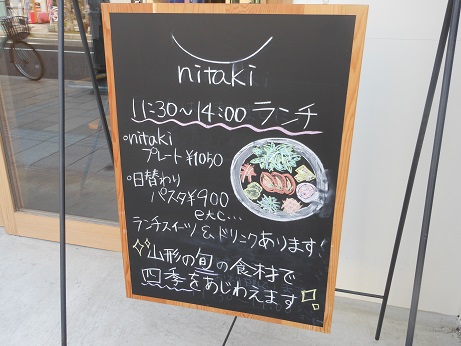 nitaki
11:30~14:00 ランチ
・nitaki
プレート ¥1050
・日替わり
パスタ¥900
etc...
ランチスイーツ & ドリンクあります!
山形の旬の食材で
四季をあじわえます